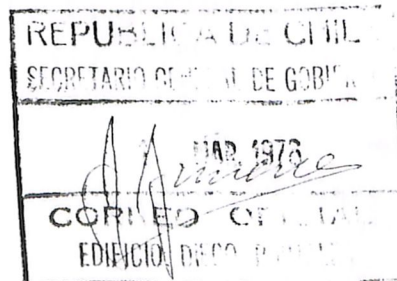 REPUBLICA DE CHIL
SECRETARIO GENERAL DE GOBIER
MAR 1976
CORREO OFICIAL
EDIFICIO DIEGO